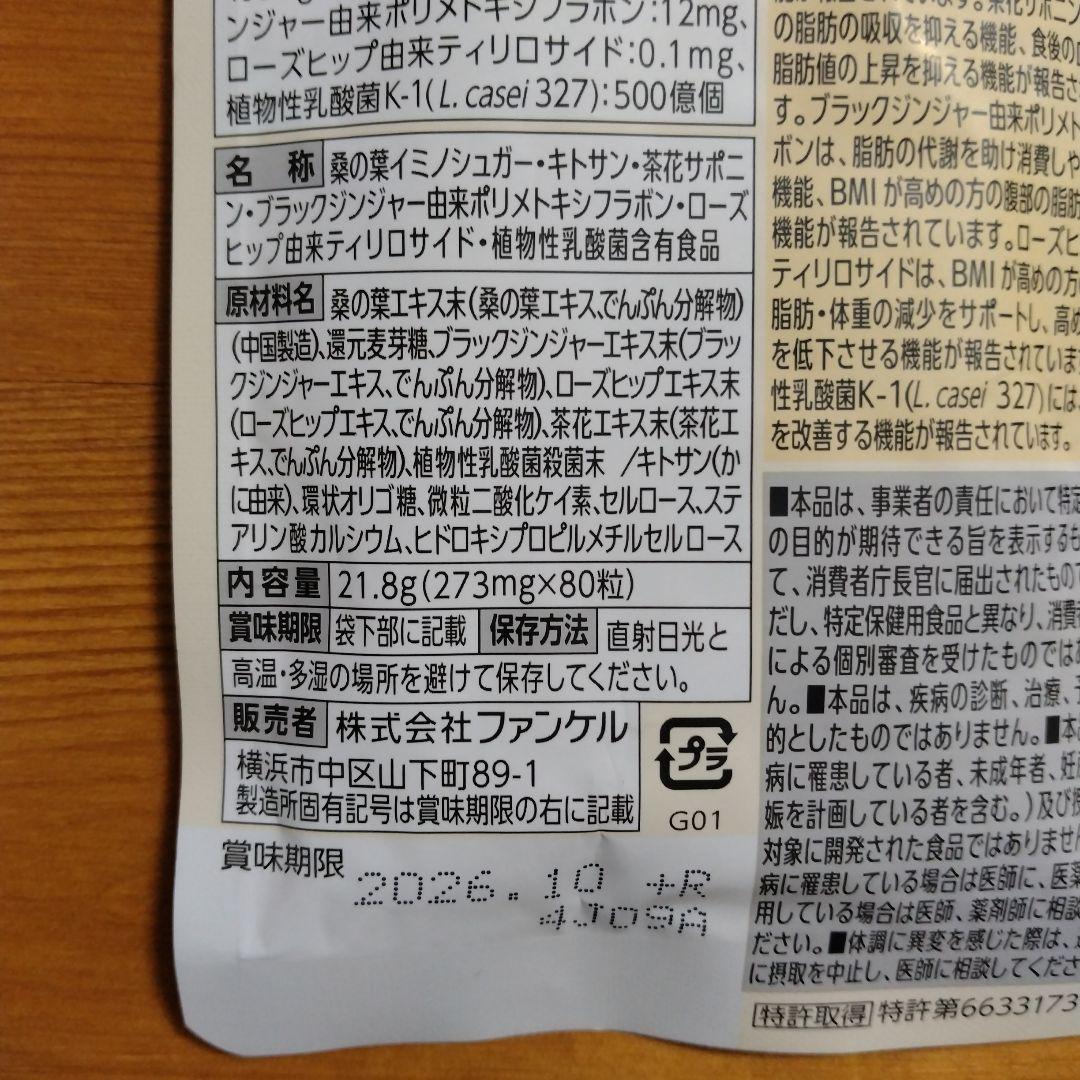 ンジャー由来ポリメトキシフラボン:12mg、
ローズヒップ由来ティリロサイド:0.1mg、
植物性乳酸菌K-1(L. casei 327):500億個
名 称 桑の葉イミノシュガー・キトサン・茶花サポニ
ン・ブラックジンジャー由来ポリメトキシフラボン・ローズ
ヒップ由来ティリロサイド・植物性乳酸菌含有食品
原材料名 桑の葉エキス末(桑の葉エキス、でんぷん分解物)
(中国製造)、還元麦芽糖、ブラックジンジャーエキス末(ブラッ
クジンジャーエキス、でんぷん分解物)、ローズヒップエキス末
(ローズヒップエキス、でんぷん分解物)、茶花エキス末(茶花エ
キス、でんぷん分解物)、植物性乳酸菌殺菌末 /キトサン(か
に由来)、環状オリゴ糖、微粒二酸化ケイ素、セルロース、ステ
アリン酸カルシウム、ヒドロキシプロピルメチルセルロース
内容量 21.8g(273mg×80粒)
賞味期限 袋下部に記載 保存方法 直射日光と
高温・多湿の場所を避けて保存してください。
販売者 株式会社ファンケル
横浜市中区山下町89-1
製造所固有記号は賞味期限の右に記載
プラ
G01
賞味期限 2026.10 +R
4J09A
の脂肪の吸収を抑える機能、食後の
脂肪値の上昇を抑える機能が報告さ
す。ブラックジンジャー由来ポリメト
ボンは、脂肪の代謝を助け消費しや
機能、BMIが高めの方の腹部の脂肪
機能が報告されています。ローズヒ
ティリロサイドは、BMIが高めの方
脂肪・体重の減少をサポートし、高め
を低下させる機能が報告されていま
性乳酸菌K-1(L. casei 327)には、
を改善する機能が報告されています。
■本品は、事業者の責任において特定
の目的が期待できる旨を表示するも
て、消費者庁長官に届出されたもので
だし、特定保健用食品と異なり、消費
による個別審査を受けたものではあ
ん。■本品は、疾病の診断、治療、予
的としたものではありません。■本
病に罹患している者、未成年者、妊
娠を計画している者を含む。)及び授
対象に開発された食品ではありませ
病に罹患している場合は医師に、医薬
用している場合は医師、薬剤師に相談
ださい。■体調に異変を感じた際は、
に摂取を中止し、医師に相談してくださ
特許取得 特許第6633173